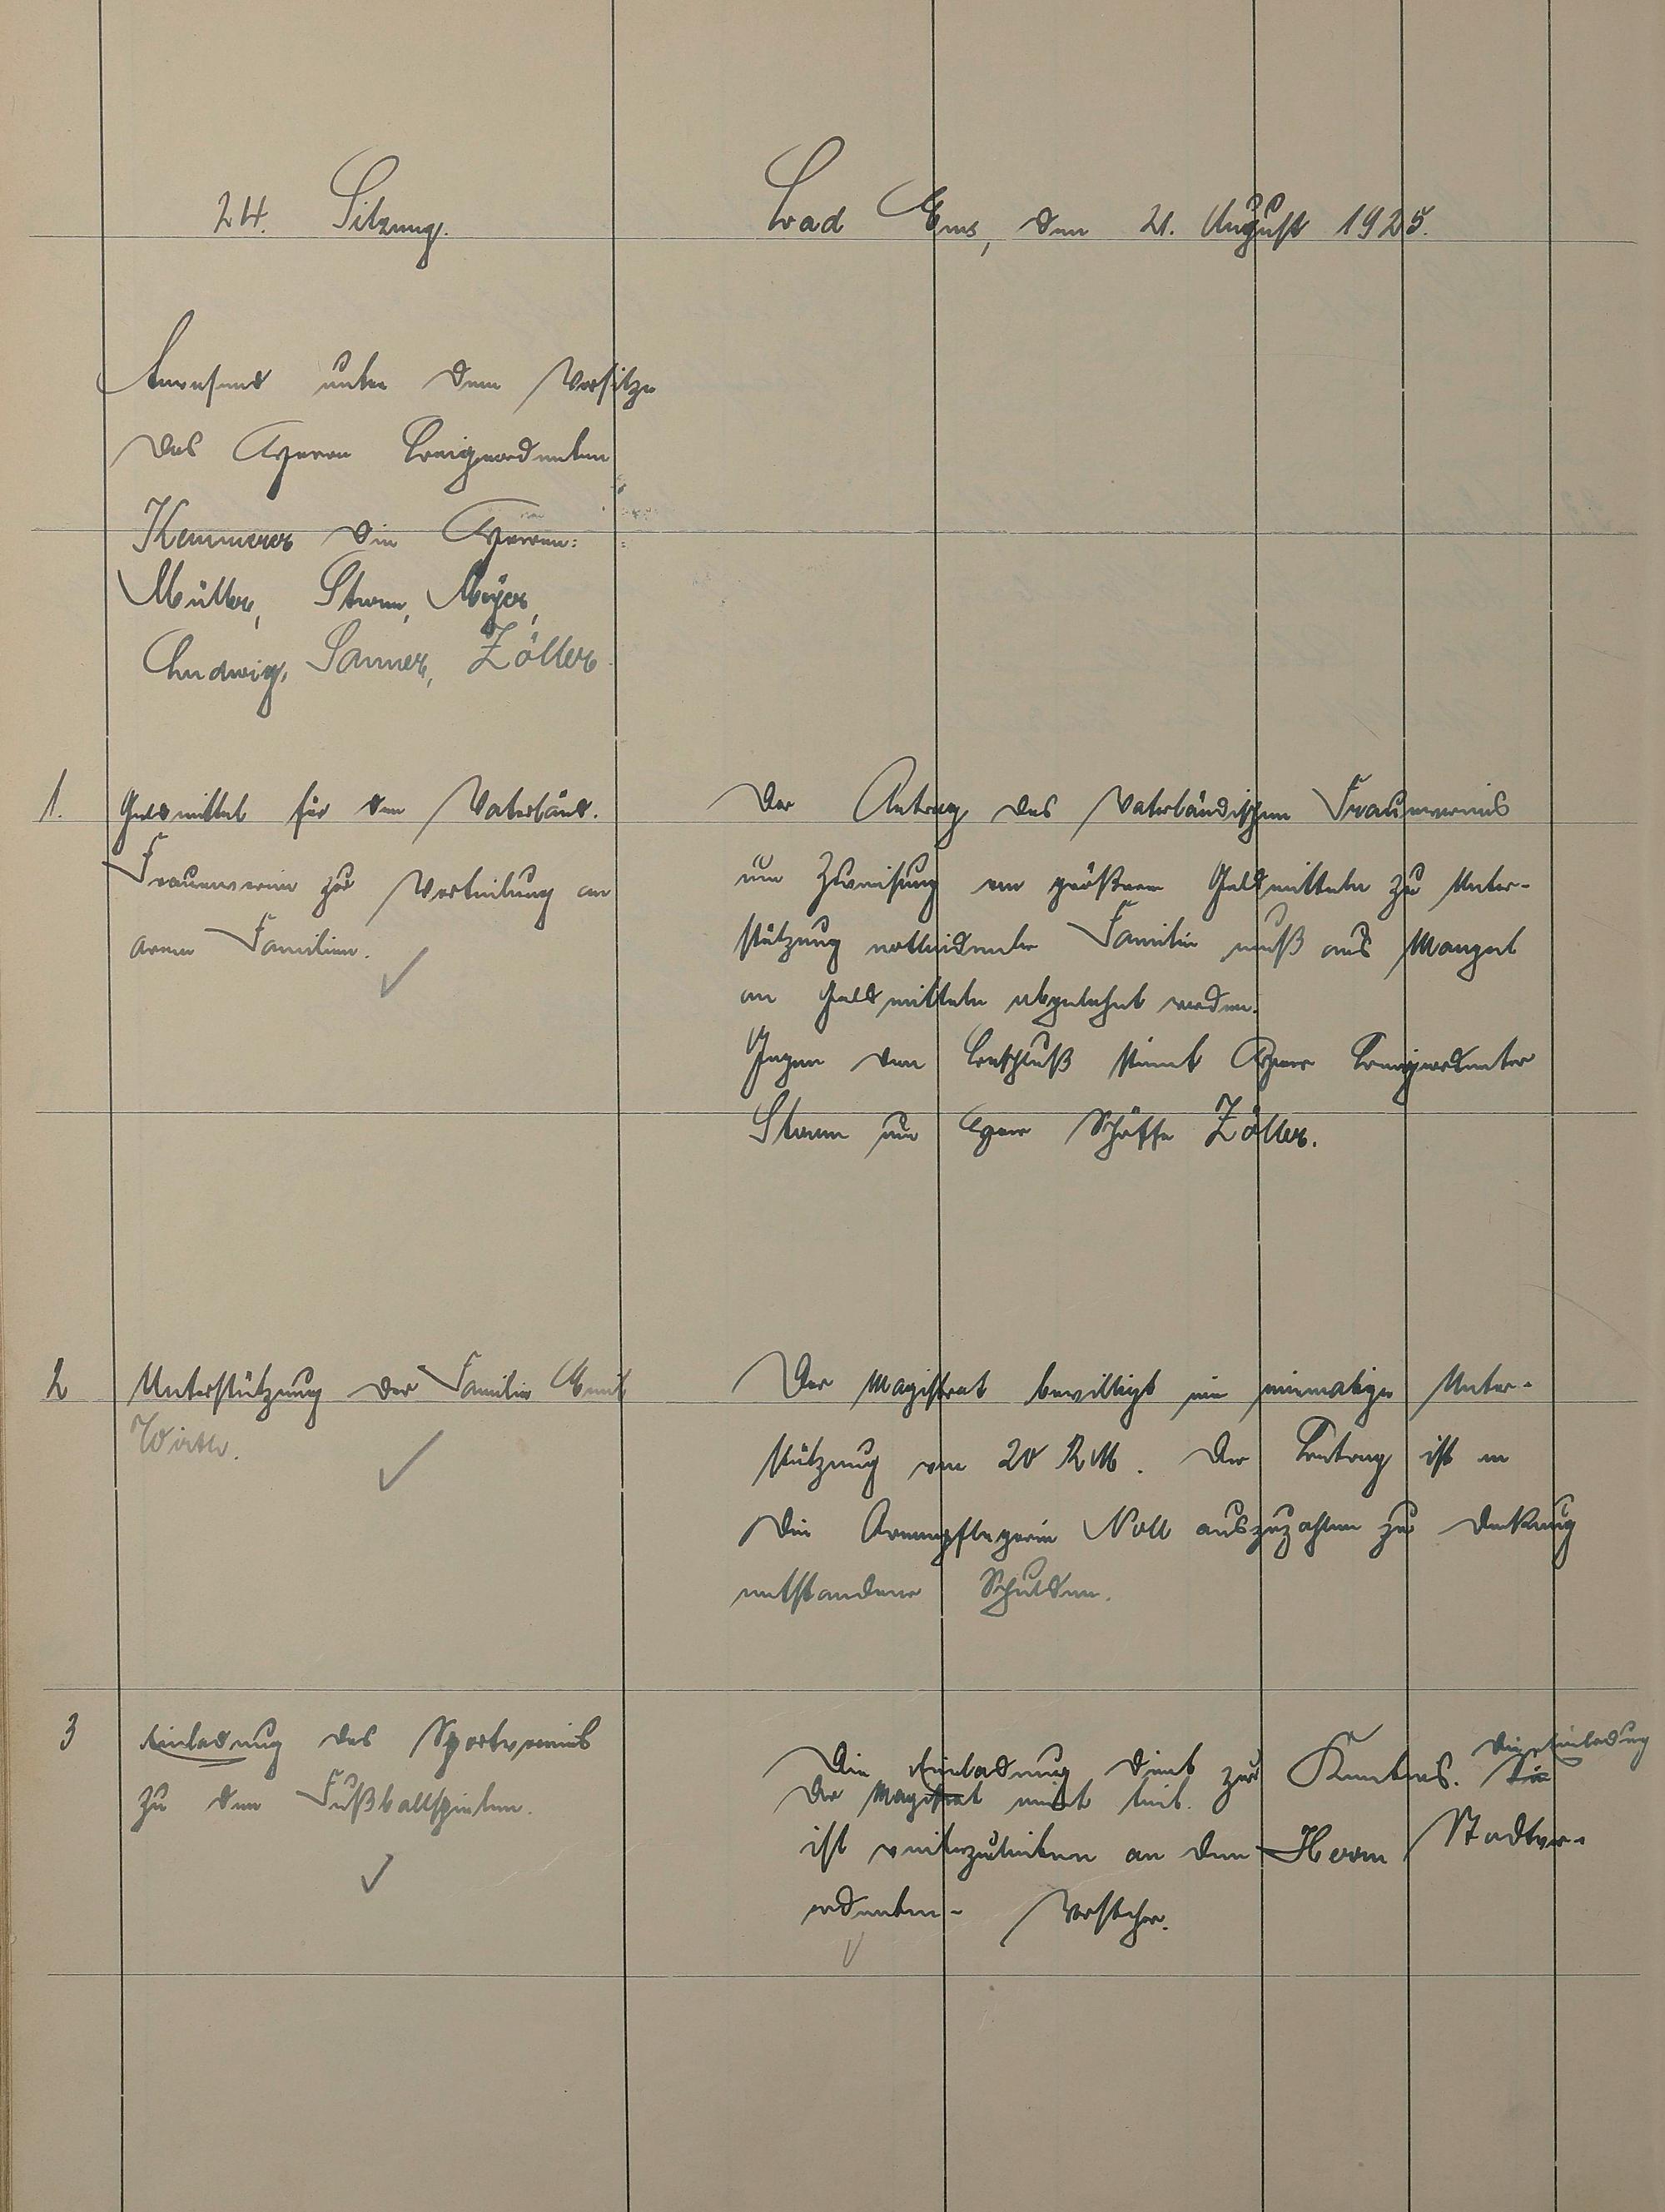 24. Sitzung.
Bad Ems, den 21. August 1925.
Anwesend unter dem Vorsitze
des Herrn Beigeordneten
Kemmerer die Herren:
Müller, Sturm, Meyer,
Ludwig, Sanner, Zöller
1. Geldmittel für den Vaterländ.
Frauenverein zur Verteilung an
arme Familien.
Der Antrag des Vaterländischen Frauenvereins
um Zuweisung von größeren Geldmitteln zu Unter-
stützung notleidender Familien muß aus Mangel
an Geldmitteln abgelehnt werden.
Gegen den Beschluß stimmt Herr Beigeordneter
Sturm und Herr Schöffe Zöller.
2 Unterstützung der Familie Emil
Wirth.
Der Magistrat bewilligt eine einmalige Unter-
stützung von 20 RM. Der Betrag ist an
die Armenpflegerin Noll auszuzahlen zur Deckung
entstandener Schulden.
3 Einladung des Sportvereins
zu den Fußballspielen.
Die Einladung dient zur Kenntnis. Die Einladung
Der Magistrat nimmt teil.
ist weiterzuleiten an den Herrn Stadtver-
ordneten-Vorsteher.